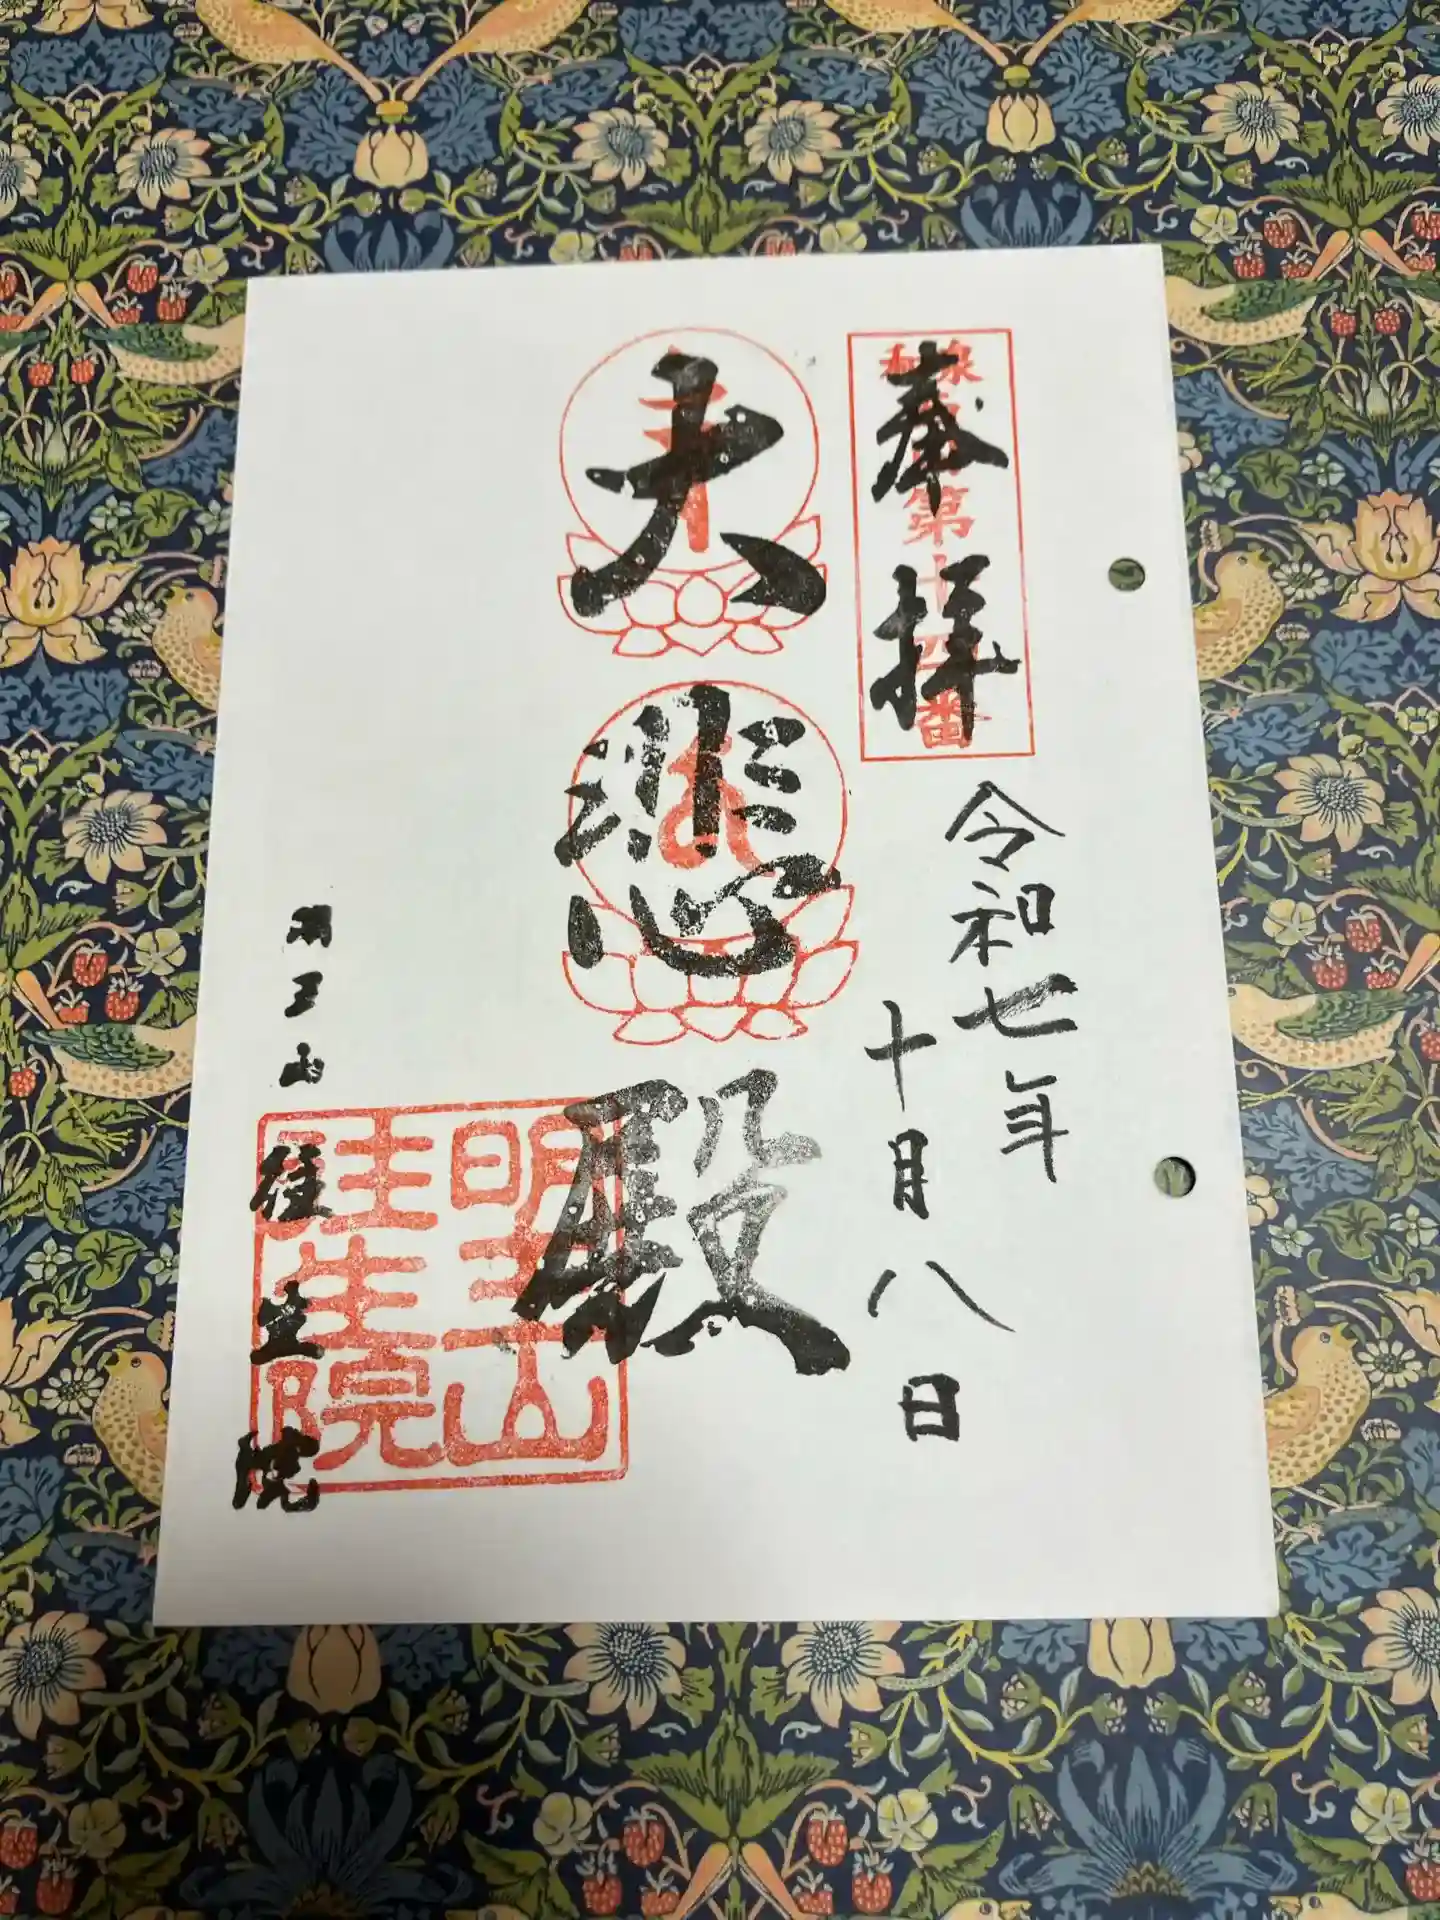 奉拝
和泉
第十四番
令和七年
十月八日
大悲殿
明王山
往生院
明王山
往生院